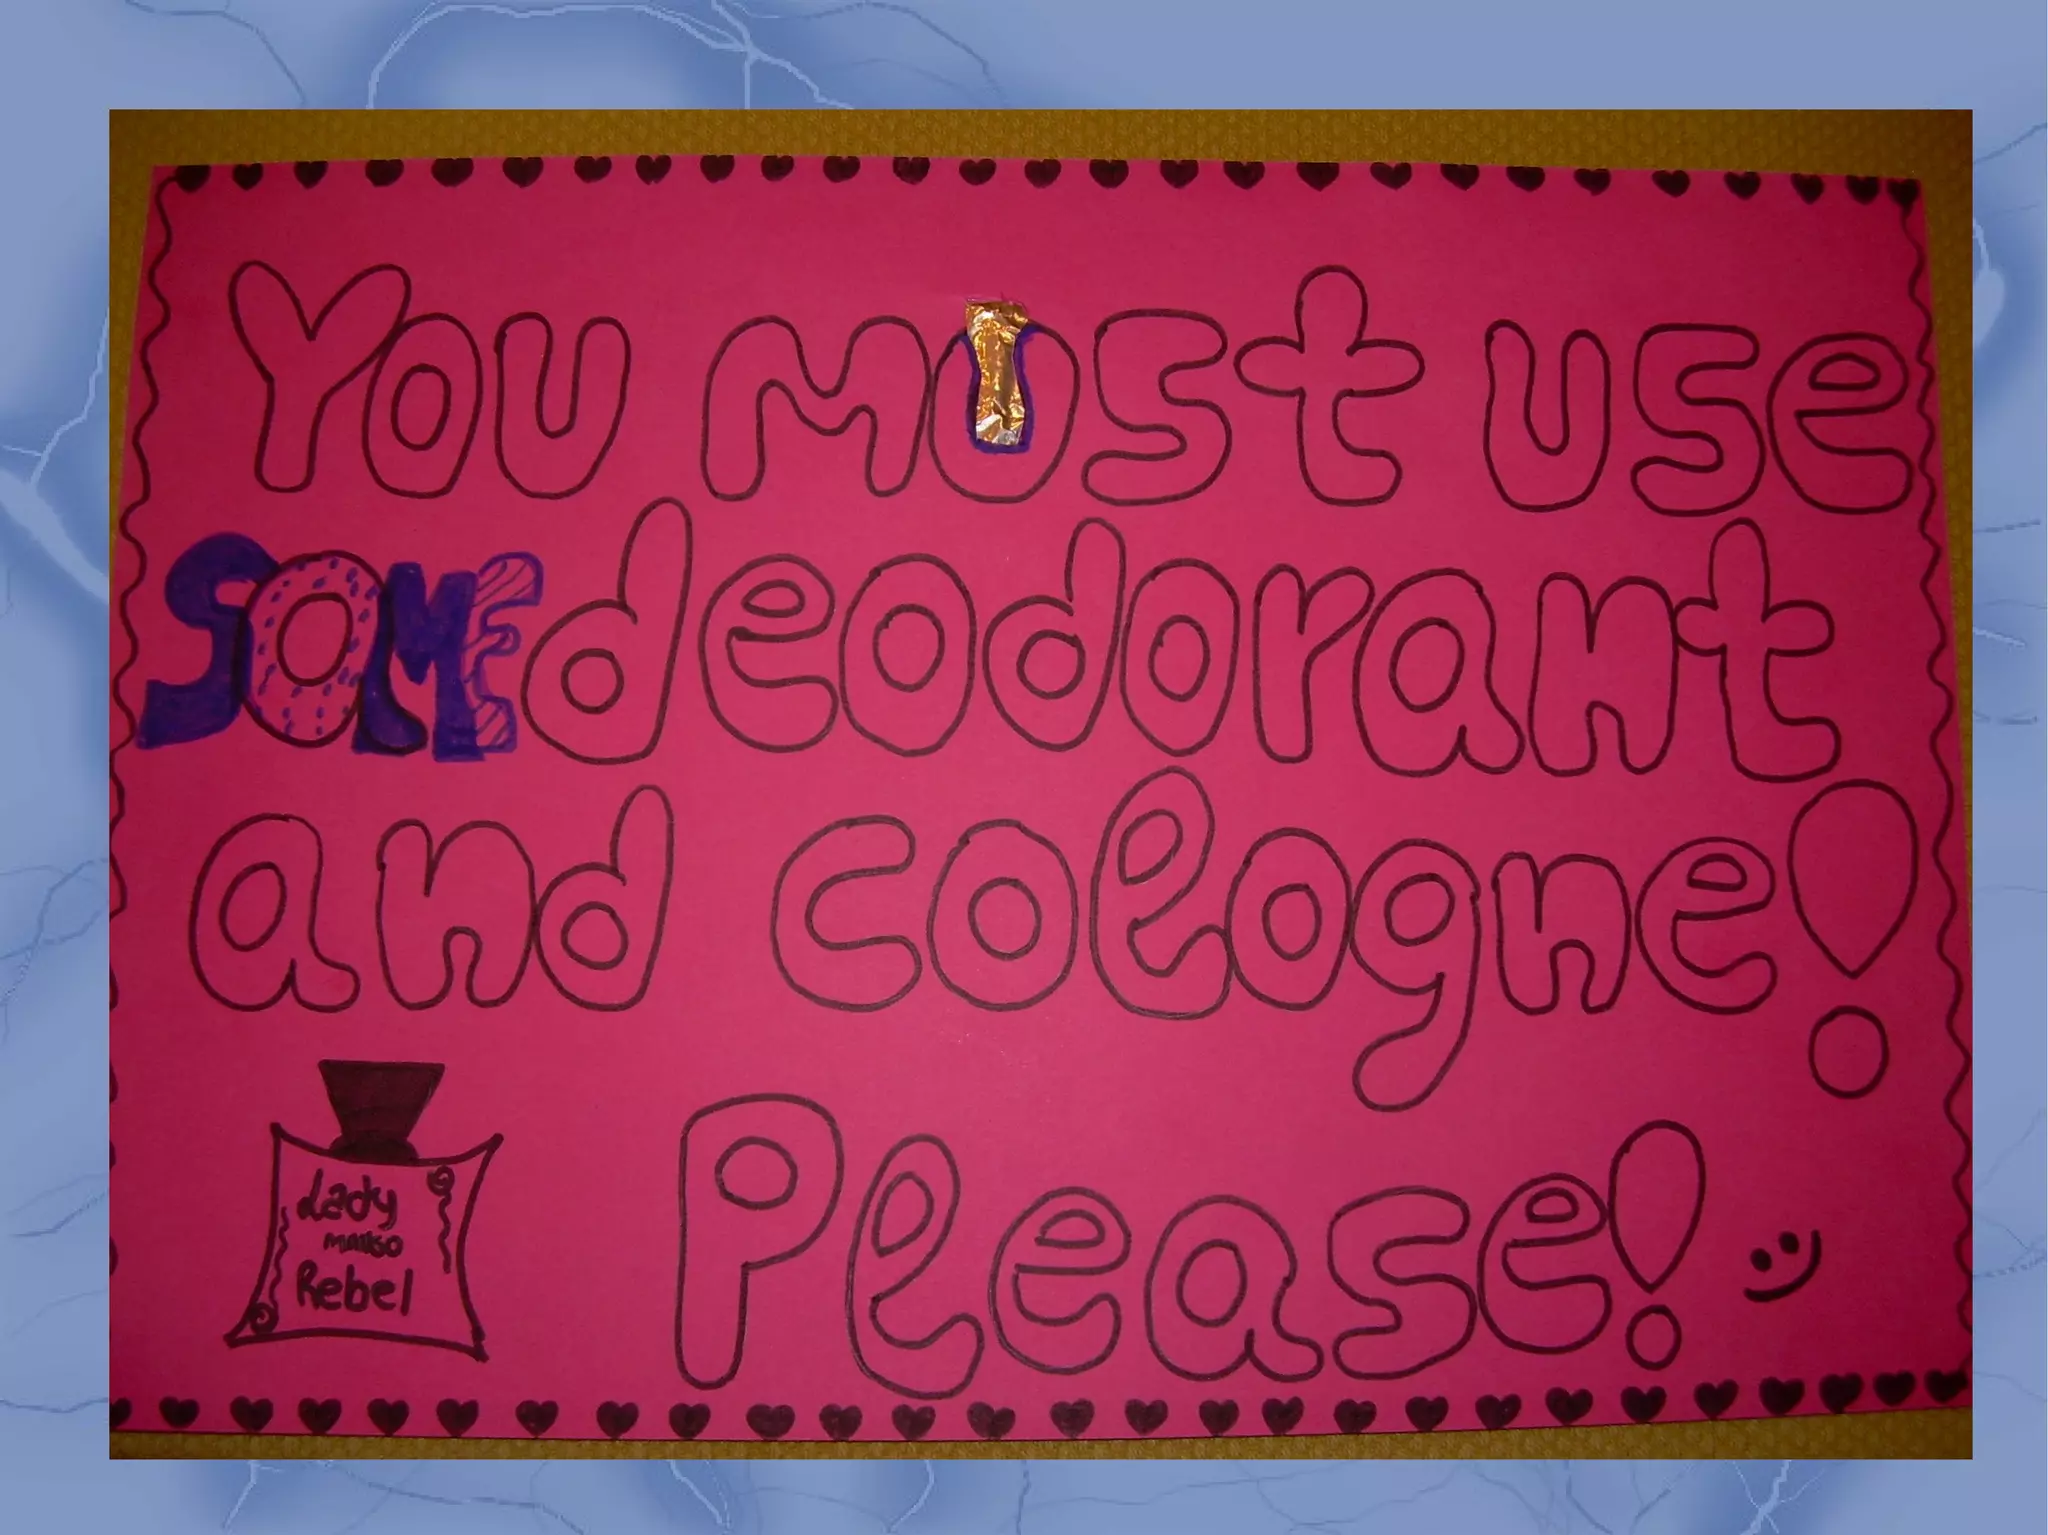 You most use
SOME deodorant
and cologne!
Please!
Lady
Rebel